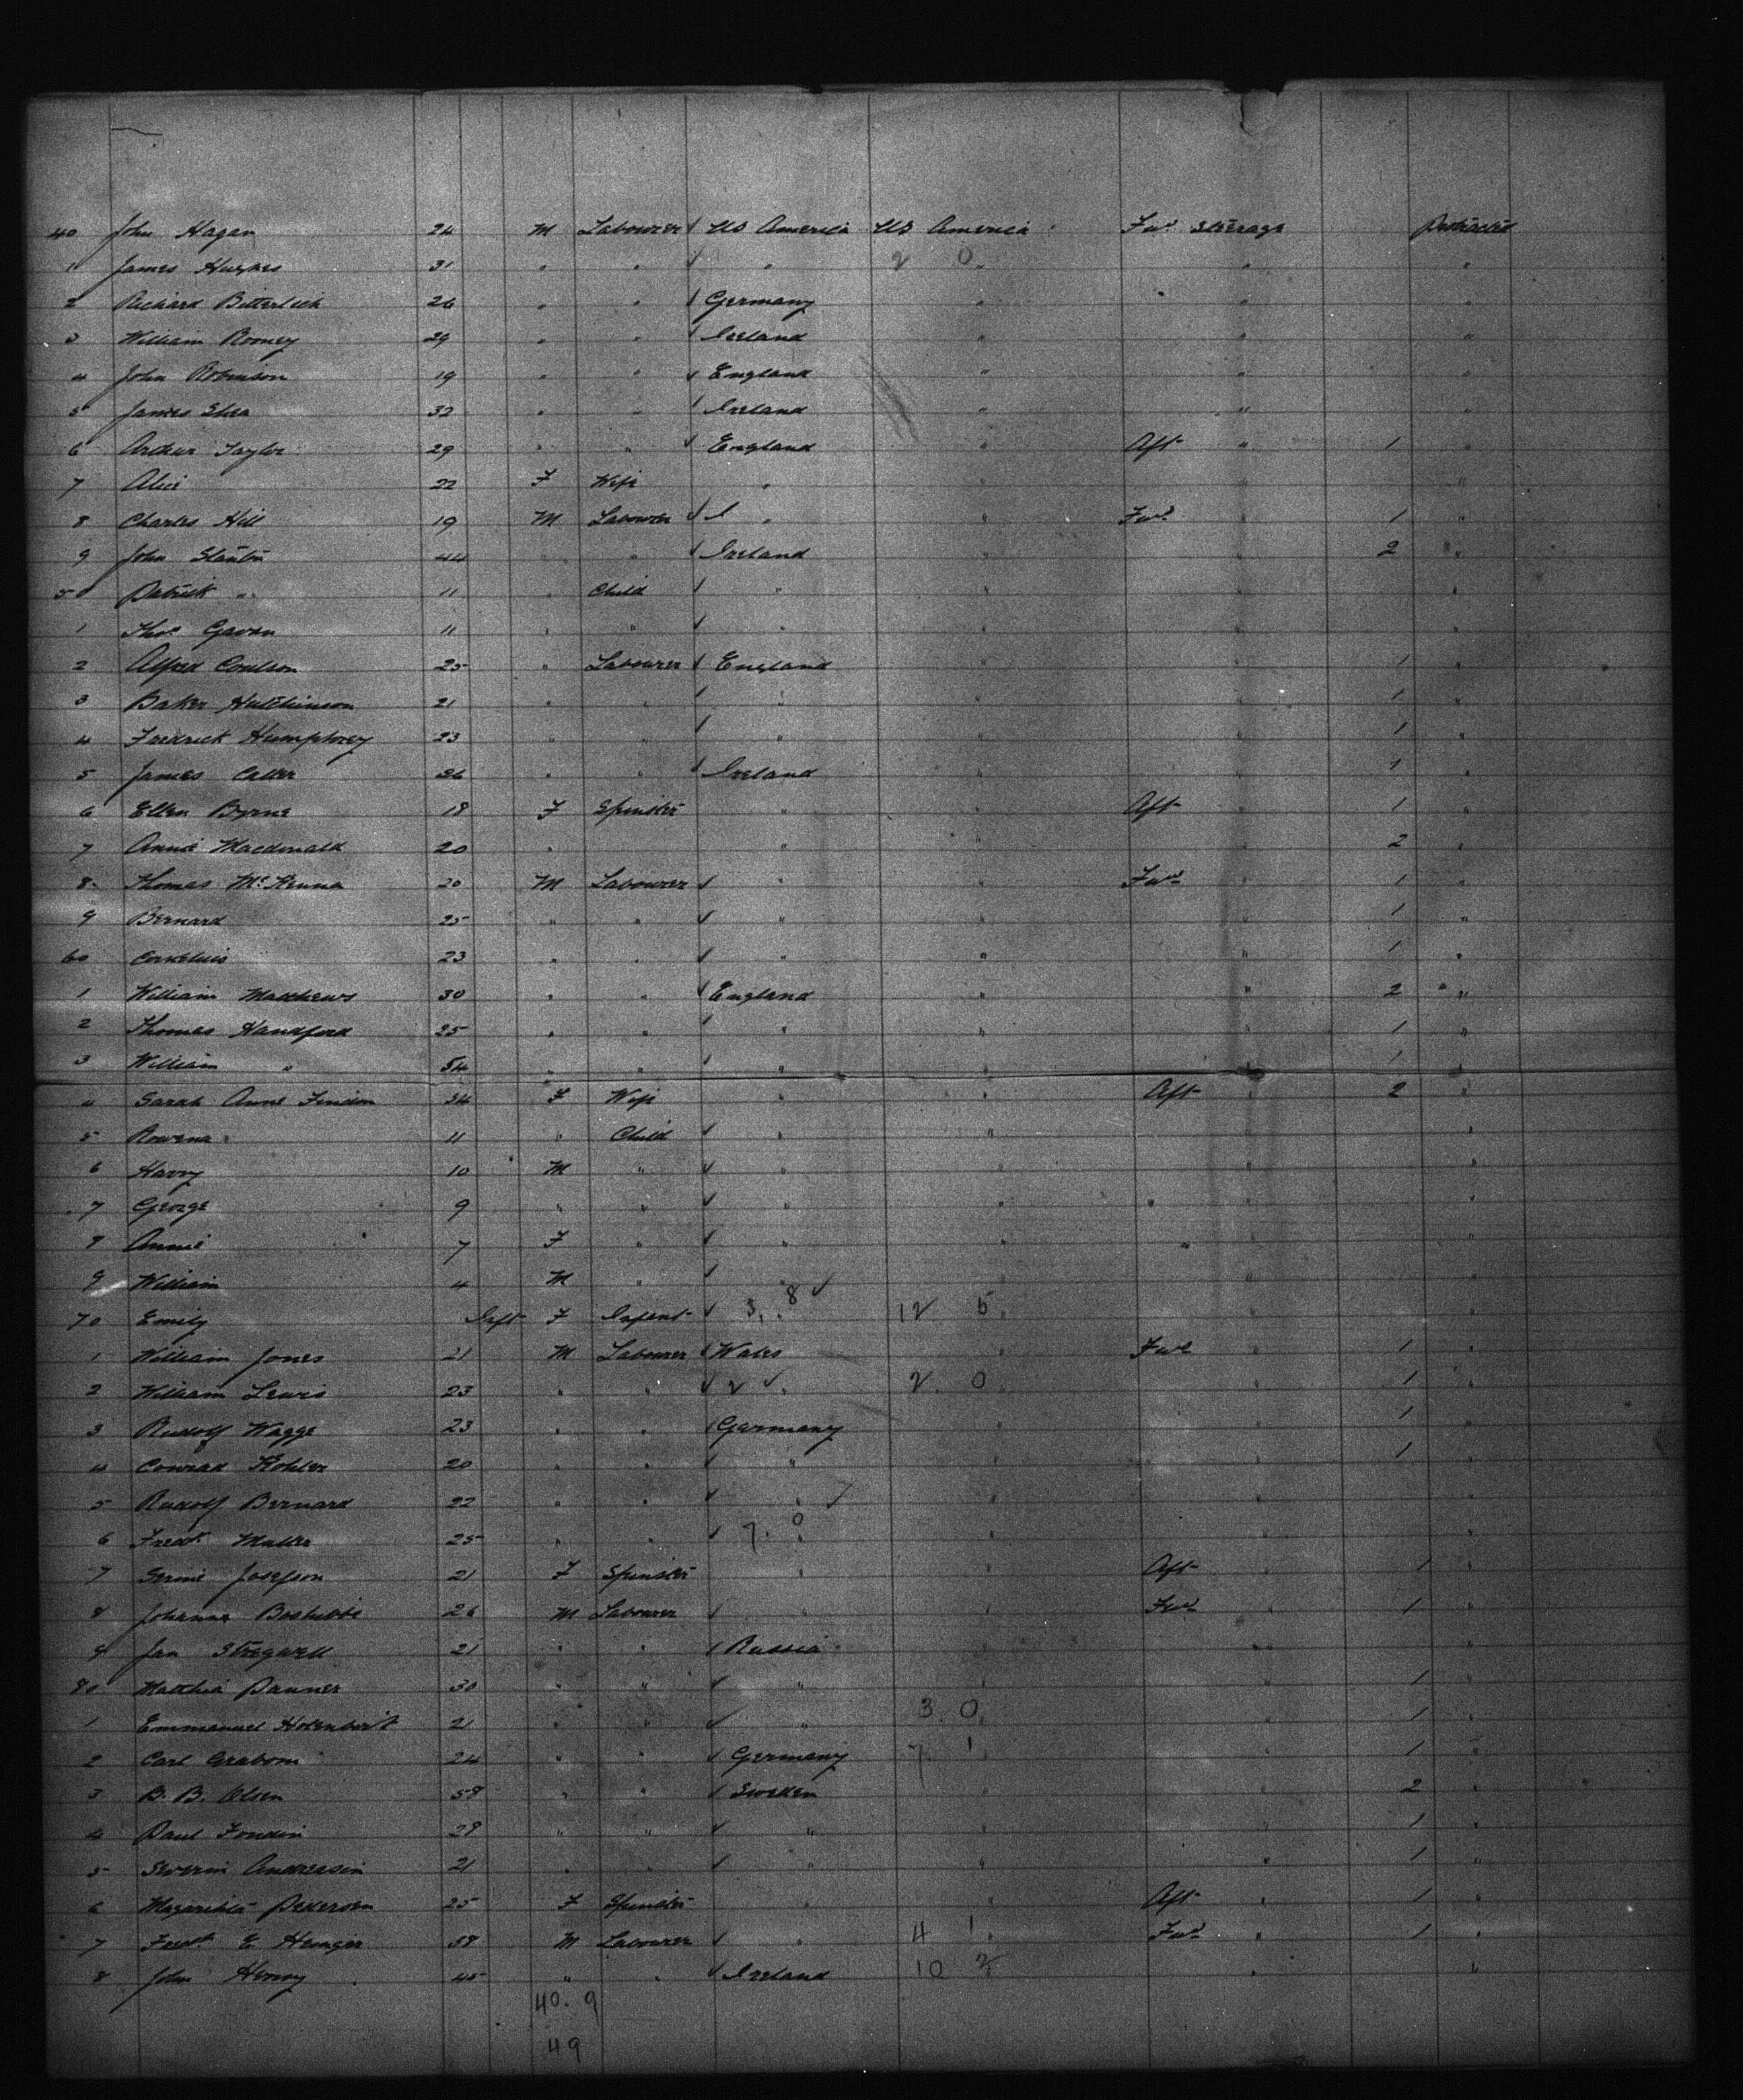 40 John Hagan 24 M Labourer ✓ US America US America Fwd Steerage Protracted
1 James Hughes 31 " " ✓ " 2 0 " " "
2 Richard Bitterlich 26 " " ✓ Germany " " "
3 William Rooney 29 " " ✓ Ireland " " "
4 John Robinson 19 " " ✓ England " " "
5 James Shea 32 " " ✓ Ireland " " "
6 Arthur Taylor 29 " " ✓ England " Aft " 1 "
7 Alice 22 F Wife " " " "
8 Charles Hill 19 M Labourer ✓ " " Fwd " 1 "
9 John Stanton 44 " " ✓ Ireland " " 2 "
50 Patrick " 11 " Child ✓ " " " "
1 Thos Gavan 11 " " ✓ " " " "
2 Alfred Coulson 25 " Labourer ✓ England " " 1 "
3 Baker Hutchinson 21 " " ✓ " " " 1 "
4 Fredrick Humphrey 23 " " ✓ " " " 1 "
5 James 26 " " ✓ Ireland " " 1 "
6 Ellen Byrne 18 F Spinster " " Aft " 1 "
7 Annie Macdonald 20 " " " " 2 "
8 Thomas McKenna 20 M Labourer ✓ " " Fwd " 1 "
9 Bernard 25 " " ✓ " " " 1 "
60 Cornelius 23 " " ✓ " " " 1 "
1 William Matthews 30 " " ✓ England " " 2 "
2 Thomas Handford 25 " " ✓ " " " 1 "
3 William " 54 " " ✓ " " " 1 "
4 Sarah Anne 34 F Wife " " Aft " 2 "
5 Rowena 11 " Child ✓ " " " "
6 Harry 10 M " ✓ " " " "
7 George 9 " " ✓ " " " "
8 Annie 7 F " ✓ " " " "
9 William 4 M " ✓ " " "
70 Emily Inft F Infant ✓ 3. 8 ✓ 12 5 " "
1 William Jones 21 M Labourer ✓ Wales " Fwd " 1 "
2 William Lewis 23 " " ✓ 2 ✓ 2. 0 " 1 "
3 Rudolf Wagge 23 " " ✓ Germany " " 1 "
4 Conrad Kohler 20 " " ✓ " " " 1 "
5 Rudolf Bernard 22 " " ✓ " ✓ " " "
6 Fredk Muller 25 " " ✓ 7. 0 " " "
7 Josefson 21 F Spinster " " Aft " 1 "
8 Johanna 26 M Labourer ✓ " " Fwd " 1 "
9 Jan 21 " " ✓ Russia " " "
80 Matthia Panner 30 " " ✓ " " " 1 "
1 Emmanuel 21 " " ✓ " 3. 0 " 1 "
2 Carl 24 " " ✓ Germany 7 1 " 1 "
3 B. B. Olsen 58 " " ✓ Sweden " " 2 "
4 Paul 28 " " ✓ " " " 1 "
5 Severin Andreasin 21 " " ✓ " " " 1 "
6 Pedersen 25 F Spinster " " Aft " 1 "
7 Fredk E 38 M Labourer ✓ " 4 1 Fwd " 1 "
8 John Henry 45 " " ✓ Ireland 10 " "
40. 9
49